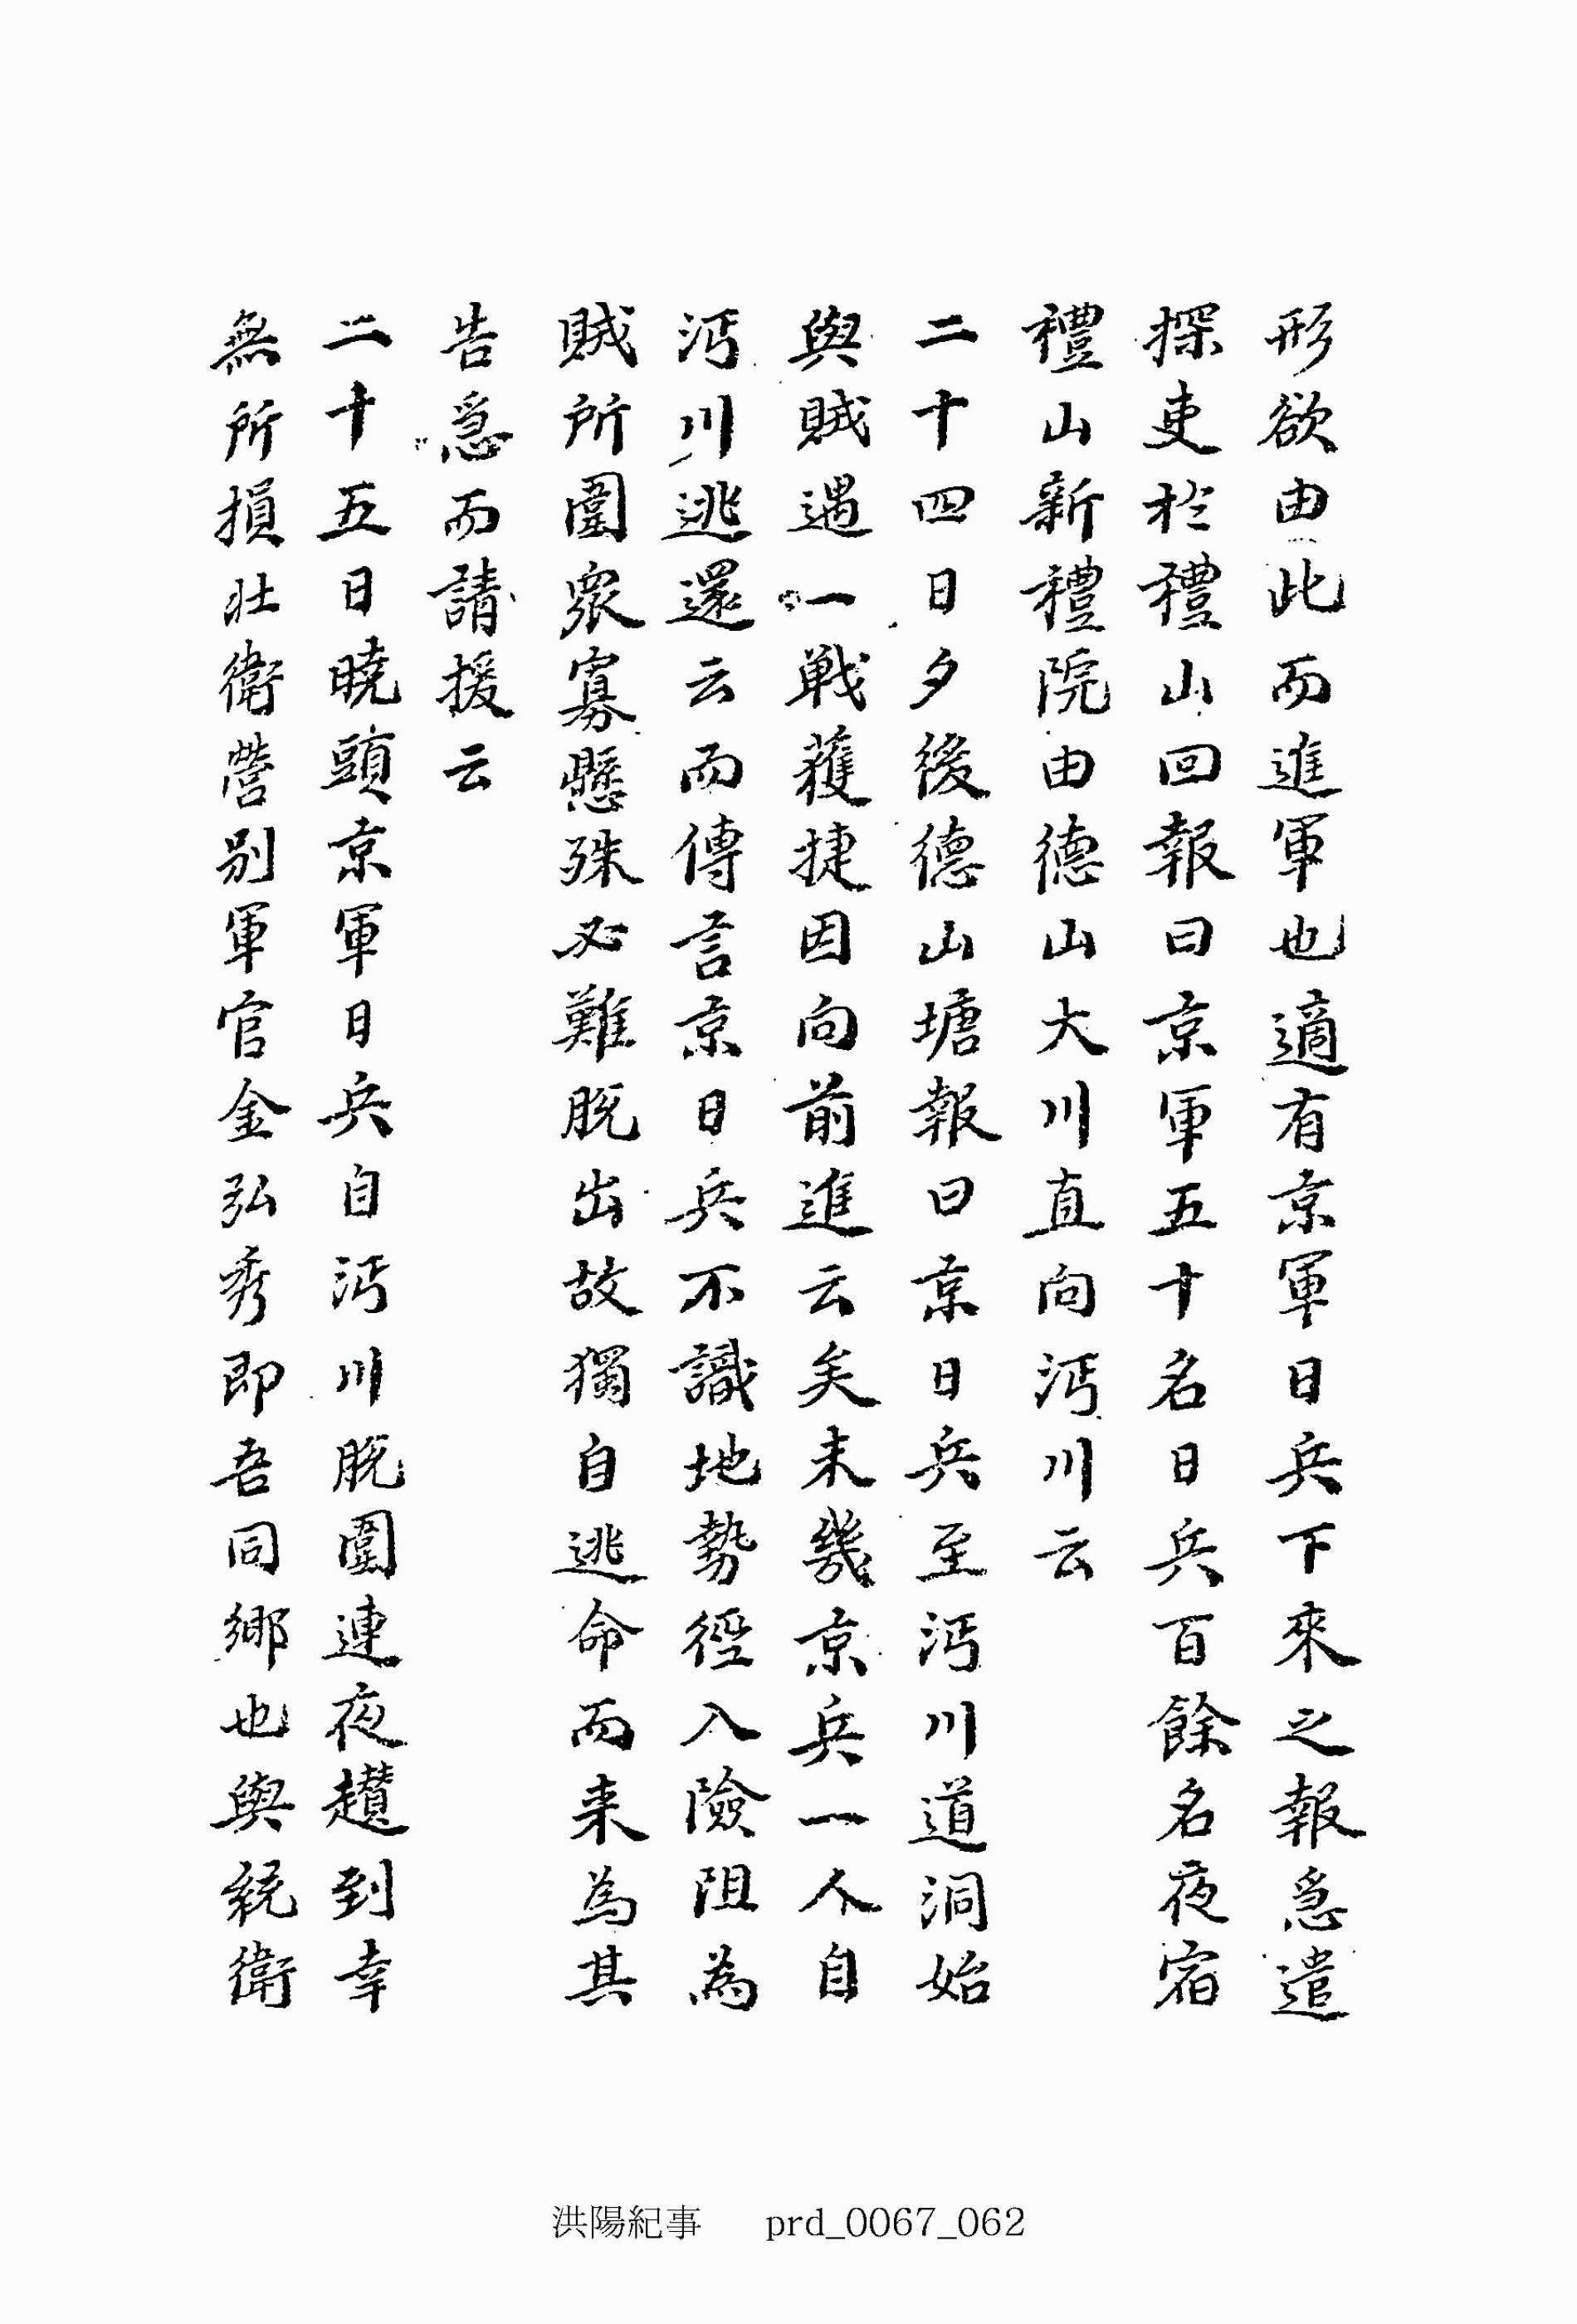 形欲由此而進軍也適有京軍日兵下來之報急遣
探吏於禮山回報曰京軍五十名日兵百餘名夜宿
禮山新禮院由德山大川直向沔川云
二十四日夕後德山塘報曰京日兵至沔川道洞始
與賊遇一戰獲捷因向前進云矣未幾京兵一人自
沔川逃還云而傳言京日兵不識地勢徑入險阻為
賊所圍衆寡懸殊必難脫出故獨自逃命而来為其
告急而請援云
二十五日曉頭京軍日兵自沔川脫圍連夜趲到幸
無所損壯衛營別軍官金弘秀即吾同鄉也與統衛
洪陽紀事 prd_0067_062